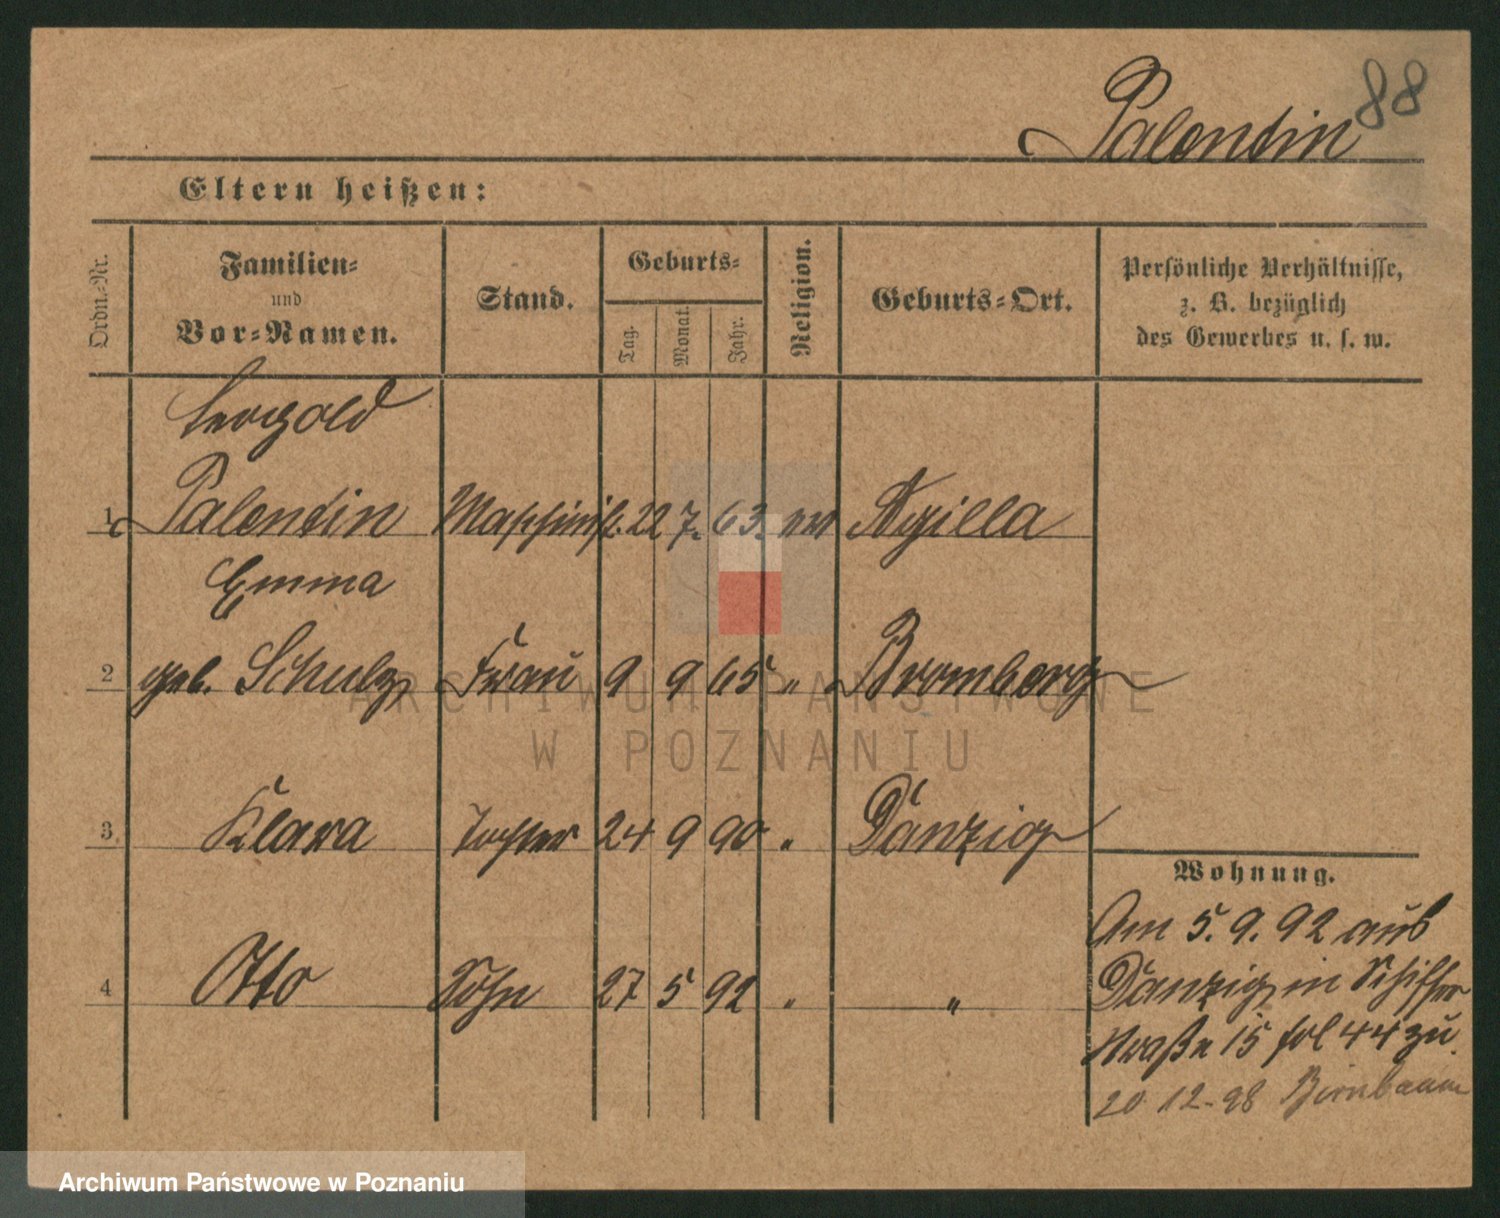 88
Palentin
Eltern heißen:
Ordn.-Nr.
Familien-
und
Vor-Namen.
Stand.
Geburts-
Tag.
Monat.
Jahr.
Religion.
Geburts-Ort.
Persönliche Verhältnisse,
z. B. bezüglich
des Gewerbes u. s. w.
Leopold
1 Palentin Maschinist. 22 7. 63. ev Agilla
Emma
2 geb. Schulz Frau 9 9 65 " Bromberg
3 Klara Tochter 24 9 90 " Danzig
Wohnung.
4 Otto Sohn 27 5 92 " "
Am 5. 9. 92 aus
Danzig in Schiffer
straße 15 fol 44 zu.
20 12-98 Birnbaum
ARCHIWUM PAŃSTWOWE
W POZNANIU
Archiwum Państwowe w Poznaniu